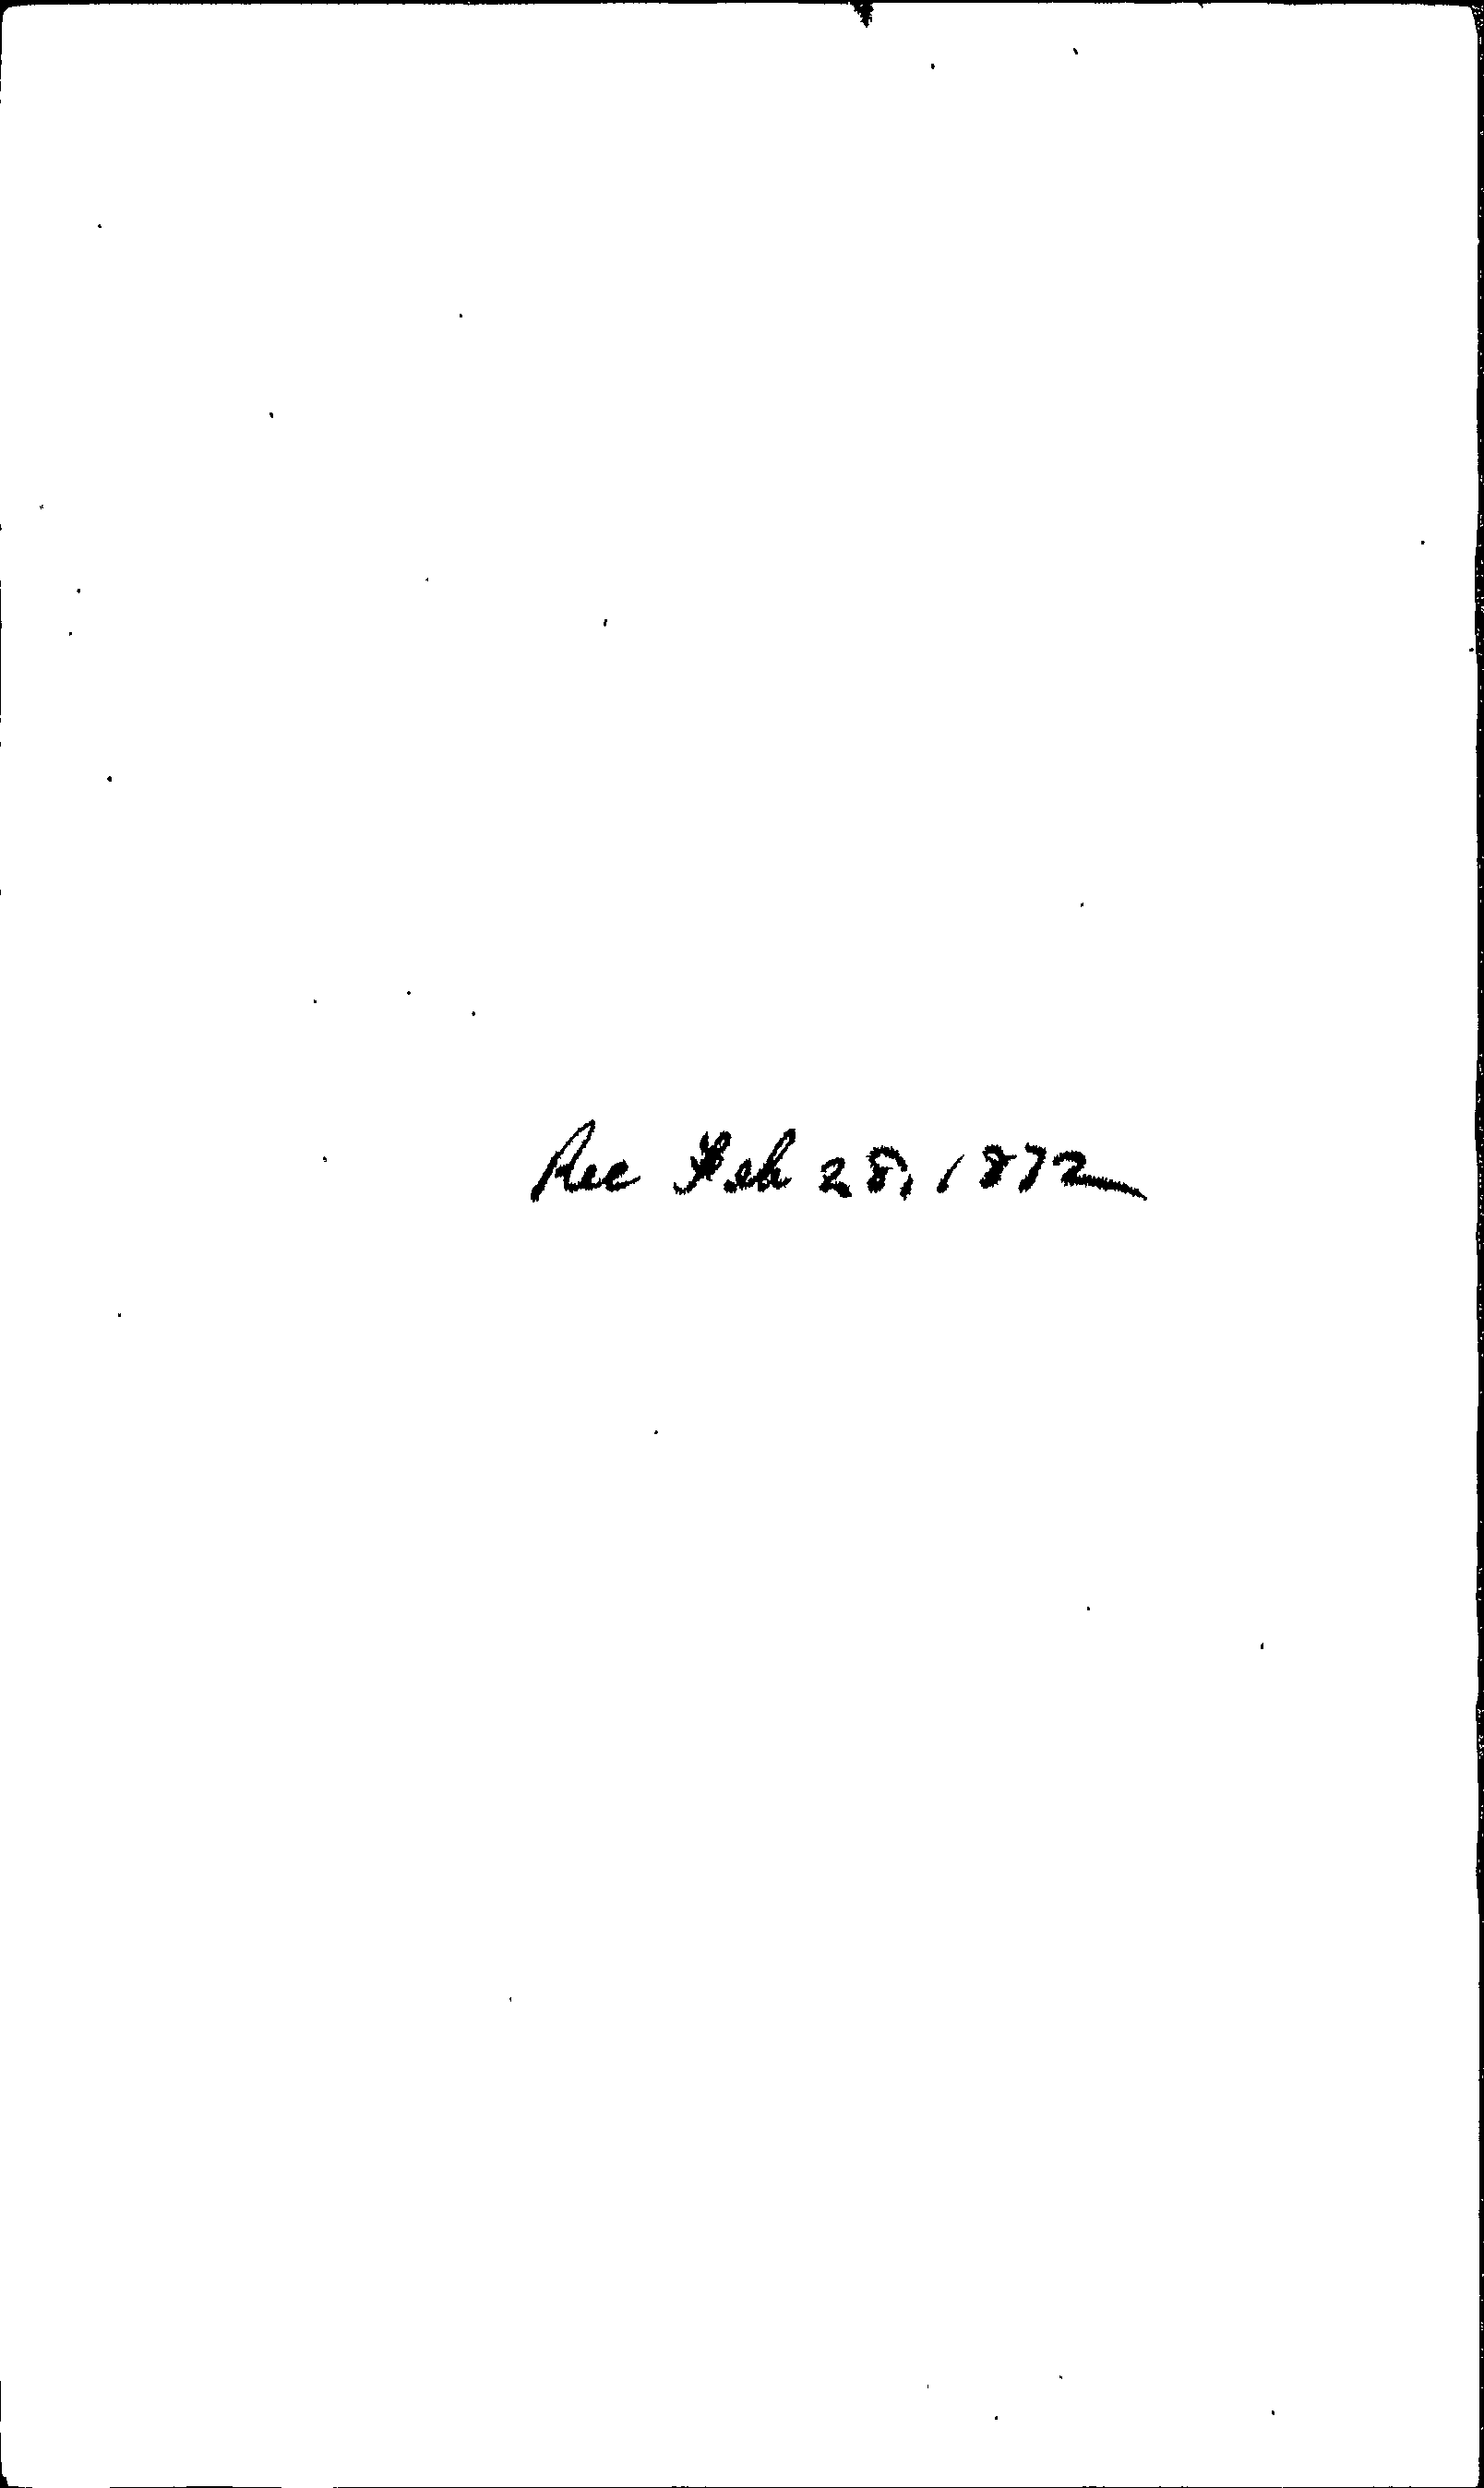 Rec Feb 28, 1872